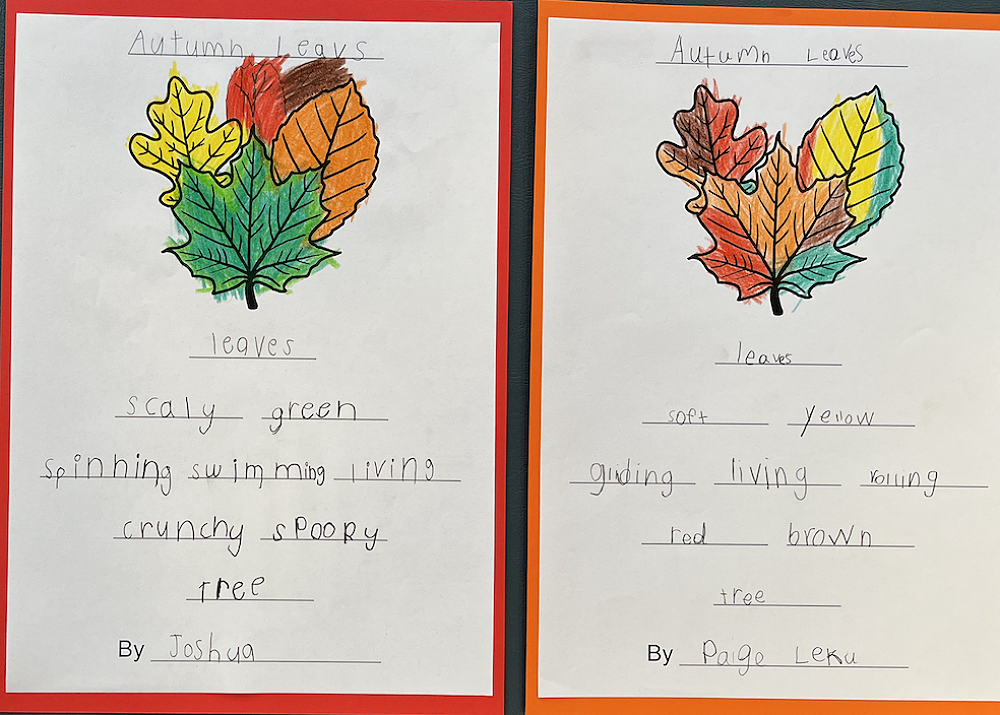 Autumn Leavs
leaves
scaly green
spinning swimming living
crunchy spooky
tree
By Joshua
Autumn Leaves
leaves
soft yellow
gliding living rolling
red brown
tree
By Paige Leku